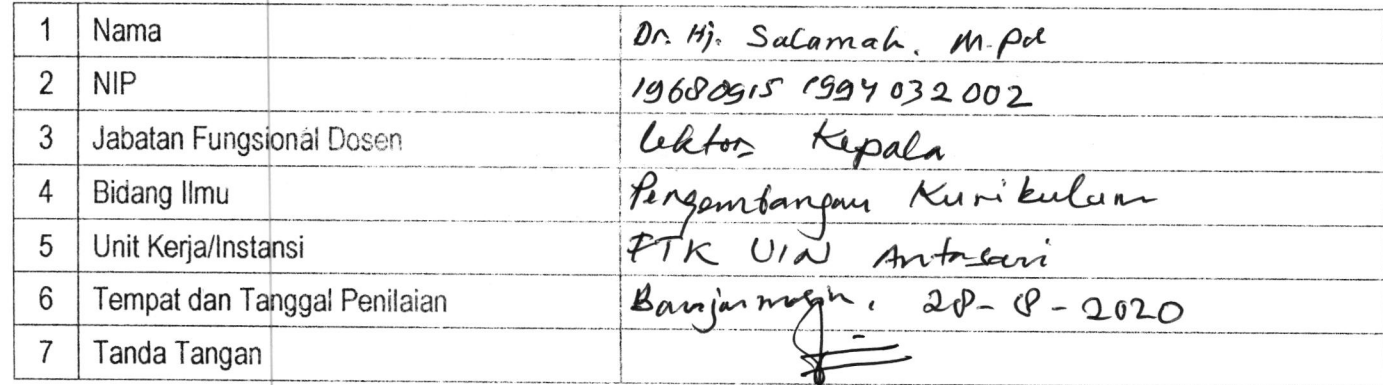 1 Nama Dr. Hj. Salamah. M.Pd
2 NIP 19680915 1994 032 002
3 Jabatan Fungsional Dosen Lektor Kepala
4 Bidang Ilmu Pengembangan Kurikulum
5 Unit Kerja/Instansi FTK UIN Antasari
6 Tempat dan Tanggal Penilaian Banjarmasin, 28-8-2020
7 Tanda Tangan